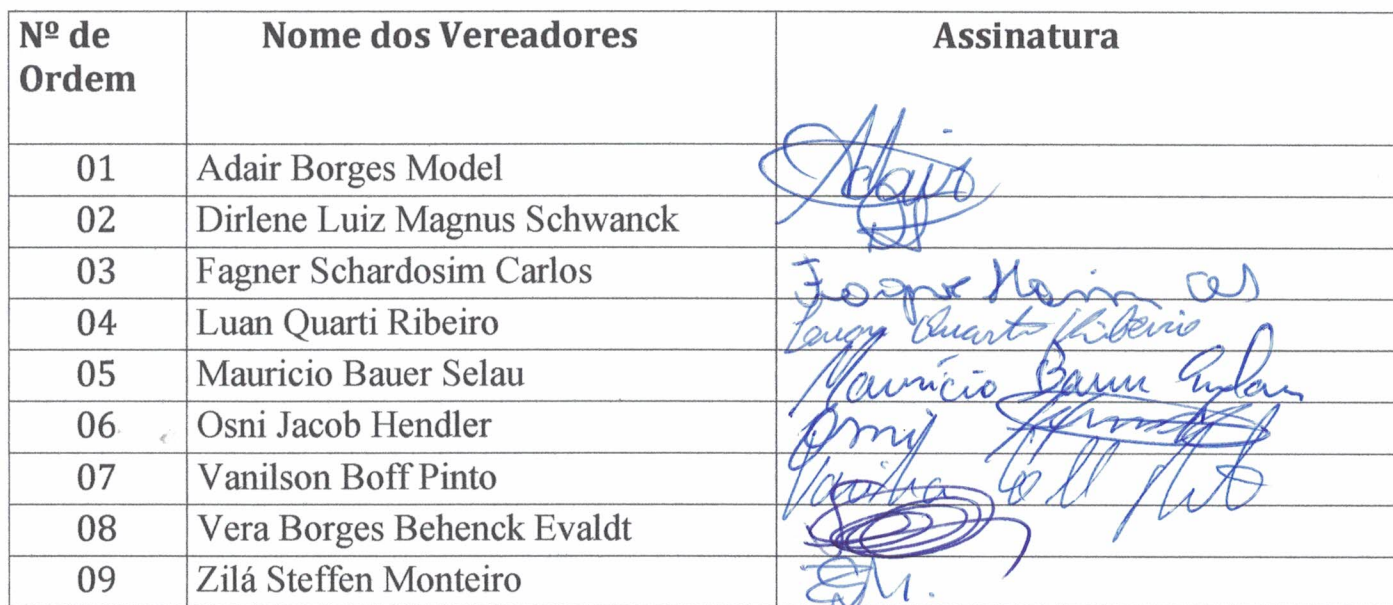 Nº de Ordem Nome dos Vereadores Assinatura
01 Adair Borges Model Adair
02 Dirlene Luiz Magnus Schwanck
03 Fagner Schardosim Carlos
04 Luan Quarti Ribeiro Luan Quarti Ribeiro
05 Mauricio Bauer Selau Maurício Bauer Selau
06 Osni Jacob Hendler Osni
07 Vanilson Boff Pinto
08 Vera Borges Behenck Evaldt
09 Zilá Steffen Monteiro